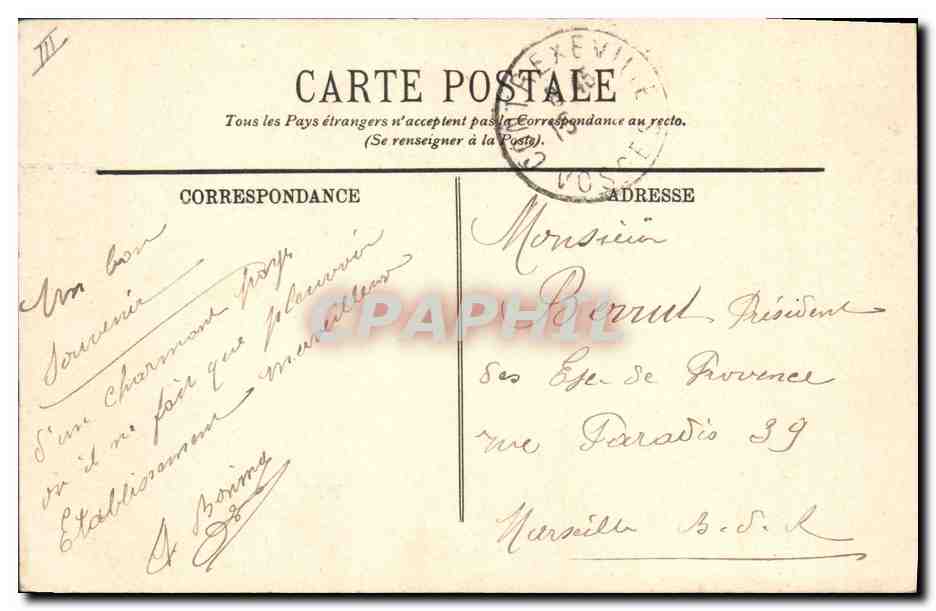 III
CARTE POSTALE
Tous les Pays étrangers n'acceptent pas la Correspondance au recto.
(Se renseigner à la Poste).
CONTREXEVILLE
VOSGES
CORRESPONDANCE
Un bon
souvenir
d'un charmant pays
où il ne fait que pleuvoir
Etablissement merveilleux
ADRESSE
Monsieur
Berrut Président
des Exc. de Provence
rue Paradis 39
Marseille B. d. R
CPAPHIL